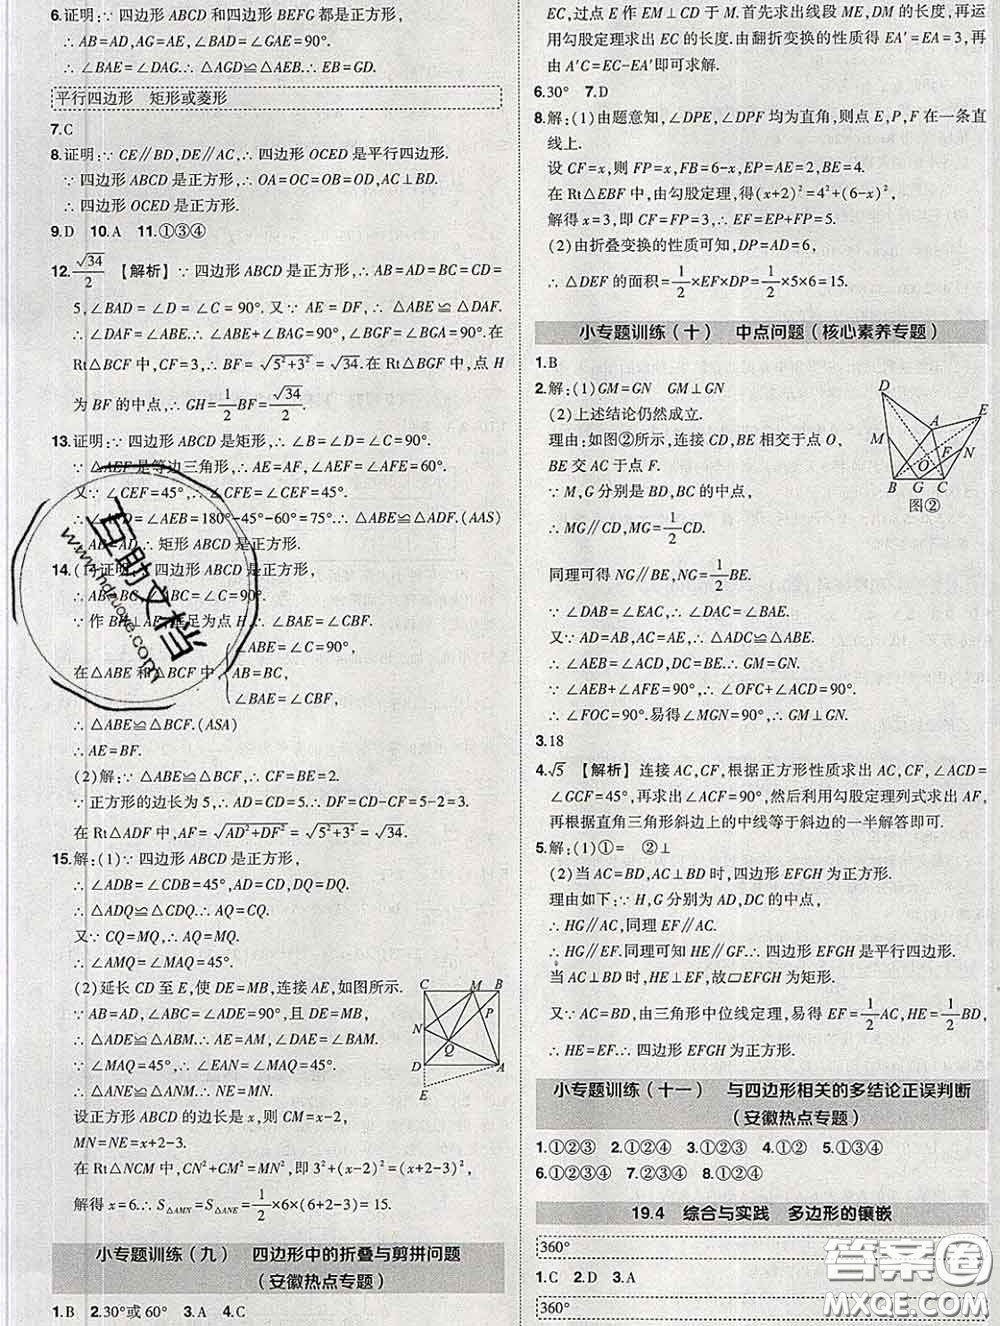 6.证明:∵四边形ABCD和四边形BEFG都是正方形,
∴AB=AD,AG=AE,∠BAD=∠GAE=90°.
∴∠BAE=∠DAG.∴△AGD≌△AEB.∴EB=GD.
平行四边形 矩形或菱形
7.C
8.证明:∵CE∥BD,DE∥AC,∴四边形OCED是平行四边形.
∵四边形ABCD是正方形,∴OA=OC=OB=OD,AC⊥BD.
∴四边形OCED是正方形.
9.D 10.A 11.①③④
12.√34/2 【解析】∵四边形ABCD是正方形,∴AB=AD=BC=CD=
5,∠BAD=∠D=∠C=90°.又∵AE=DF,∴△ABE≌△DAF.
∴∠DAF=∠ABE.∴∠ABE+∠BAG=90°,∠BGF=90°.在
Rt△BCF中,CF=3,∴BF=√5²+3²=√34.在Rt△BGF中,点H
为BF的中点,∴GH=1/2BF=√34/2.
13.证明:∵四边形ABCD是矩形,∴∠B=∠D=∠C=90°.
∵△AEF是等边三角形,∴AE=AF,∠AEF=∠AFE=60°.
又∵∠CEF=45°,∴∠CFE=∠CEF=45°.
∴∠AFD=∠AEB=180°-45°-60°=75°.∴△ABE≌△ADF.(AAS)
∴AB=AD.∴矩形ABCD是正方形.
14.(1)证明:∵四边形ABCD是正方形,
∴AB=BC,∠ABE=∠C=90°.
∵作BH⊥AE,垂足为点H,∴∠BAE=∠CBF.
在△ABE和△BCF中,{∠ABE=∠C=90°,
AB=BC,
∠BAE=∠CBF,
∴△ABE≌△BCF.(ASA)
∴AE=BF.
(2)解:∵△ABE≌△BCF,∴CF=BE=2.
∵正方形的边长为5,∴AD=CD=5.∴DF=CD-CF=5-2=3.
在Rt△ADF中,AF=√AD²+DF²=√5²+3²=√34.
15.解:(1)∵四边形ABCD是正方形,
∴∠ADB=∠CDB=45°,AD=CD,DQ=DQ.
∴△ADQ≌△CDQ.∴AQ=CQ.
又∵CQ=MQ,∴AQ=MQ.
∴∠AMQ=∠MAQ=45°.
(2)延长CD至E,使DE=MB,连接AE,如图所示.
∵AD=AB,∠ADE=∠ABM=90°,且DE=MB,
∴△ADE≌△ABM.∴AE=AM,∠DAE=∠MAB.
∵∠MAQ=45°,∴∠EAN=∠MAQ=45°.
∴△ANE≌△ANM.∴NE=MN.
设正方形ABCD的边长是x,则CM=x-2,
MN=NE=x+2-3.
在Rt△NCM中,CN²+CM²=MN²,即3²+(x-2)²=(x+2-3)²,
解得x=6.∴S△AMN=S△ANE=1/2×6×(6+2-3)=15.
C M B
P
N
Q
D A
E
小专题训练(九) 四边形中的折叠与剪拼问题
(安徽热点专题)
1.B 2.30°或60° 3.A 4.C
EC,过点E作EM⊥CD于M.首先求出线段ME,DM的长度,再运
用勾股定理求出EC的长度.由翻折变换的性质得EA′=EA=3,再
由A′C=EC-EA′即可求解.
6.30° 7.D
8.解:(1)由题意知,∠DPE,∠DPF均为直角,则点E,P,F在一条直
线上.
设CF=x,则FP=x,FB=6-x,EP=AE=2,BE=4.
在Rt△EBF中,由勾股定理,得(x+2)²=4²+(6-x)²,
解得x=3,即CF=FP=3,∴EF=EP+FP=5.
(2)由折叠变换的性质可知,DP=AD=6,
∴△DEF的面积=1/2×EF×DP=1/2×5×6=15.
小专题训练(十) 中点问题(核心素养专题)
1.B
2.解:(1)GM=GN GM⊥GN
(2)上述结论仍然成立.
理由:如图②所示,连接CD,BE相交于点O,
BE交AC于点F.
∵M,G分别是BD,BC的中点,
∴MG∥CD,MG=1/2CD.
同理可得NG∥BE,NG=1/2BE.
∵∠DAB=∠EAC,∴∠DAC=∠BAE.
又∵AD=AB,AC=AE,∴△ADC≌△ABE.
∴∠AEB=∠ACD,DC=BE.∴GM=GN.
∵∠AEB+∠AFE=90°,∴∠OFC+∠ACD=90°.
∴∠FOC=90°.易得∠MGN=90°,∴GM⊥GN.
D
A E
M F N
O
B G C
图②
3.18
4.√5 【解析】连接AC,CF,根据正方形性质求出AC,CF,∠ACD=
∠GCF=45°,再求出∠ACF=90°,然后利用勾股定理列式求出AF,
再根据直角三角形斜边上的中线等于斜边的一半解答即可.
5.解:(1)①= ②⊥
(2)当AC=BD,AC⊥BD时,四边形EFGH为正方形.
理由如下:∵H,G分别为AD,DC的中点,
∴HG∥AC,同理EF∥AC.
∴HG∥EF.同理可知HE∥GF.∴四边形EFGH是平行四边形.
当AC⊥BD时,HE⊥EF,故▱EFGH为矩形.
又∵AC=BD,由三角形中位线定理,易得EF=1/2AC,HE=1/2BD,
∴HE=EF.∴四边形EFGH为正方形.
小专题训练(十一) 与四边形相关的多结论正误判断
(安徽热点专题)
1.①②③ 2.①②④ 3.①②③ 4.①② 5.①③④
6.①②③④ 7.②③④ 8.①②④
19.4 综合与实践 多边形的镶嵌
360°
1.C 2.D 3.A
360°
互助文档
答案圈
MXQE.COM